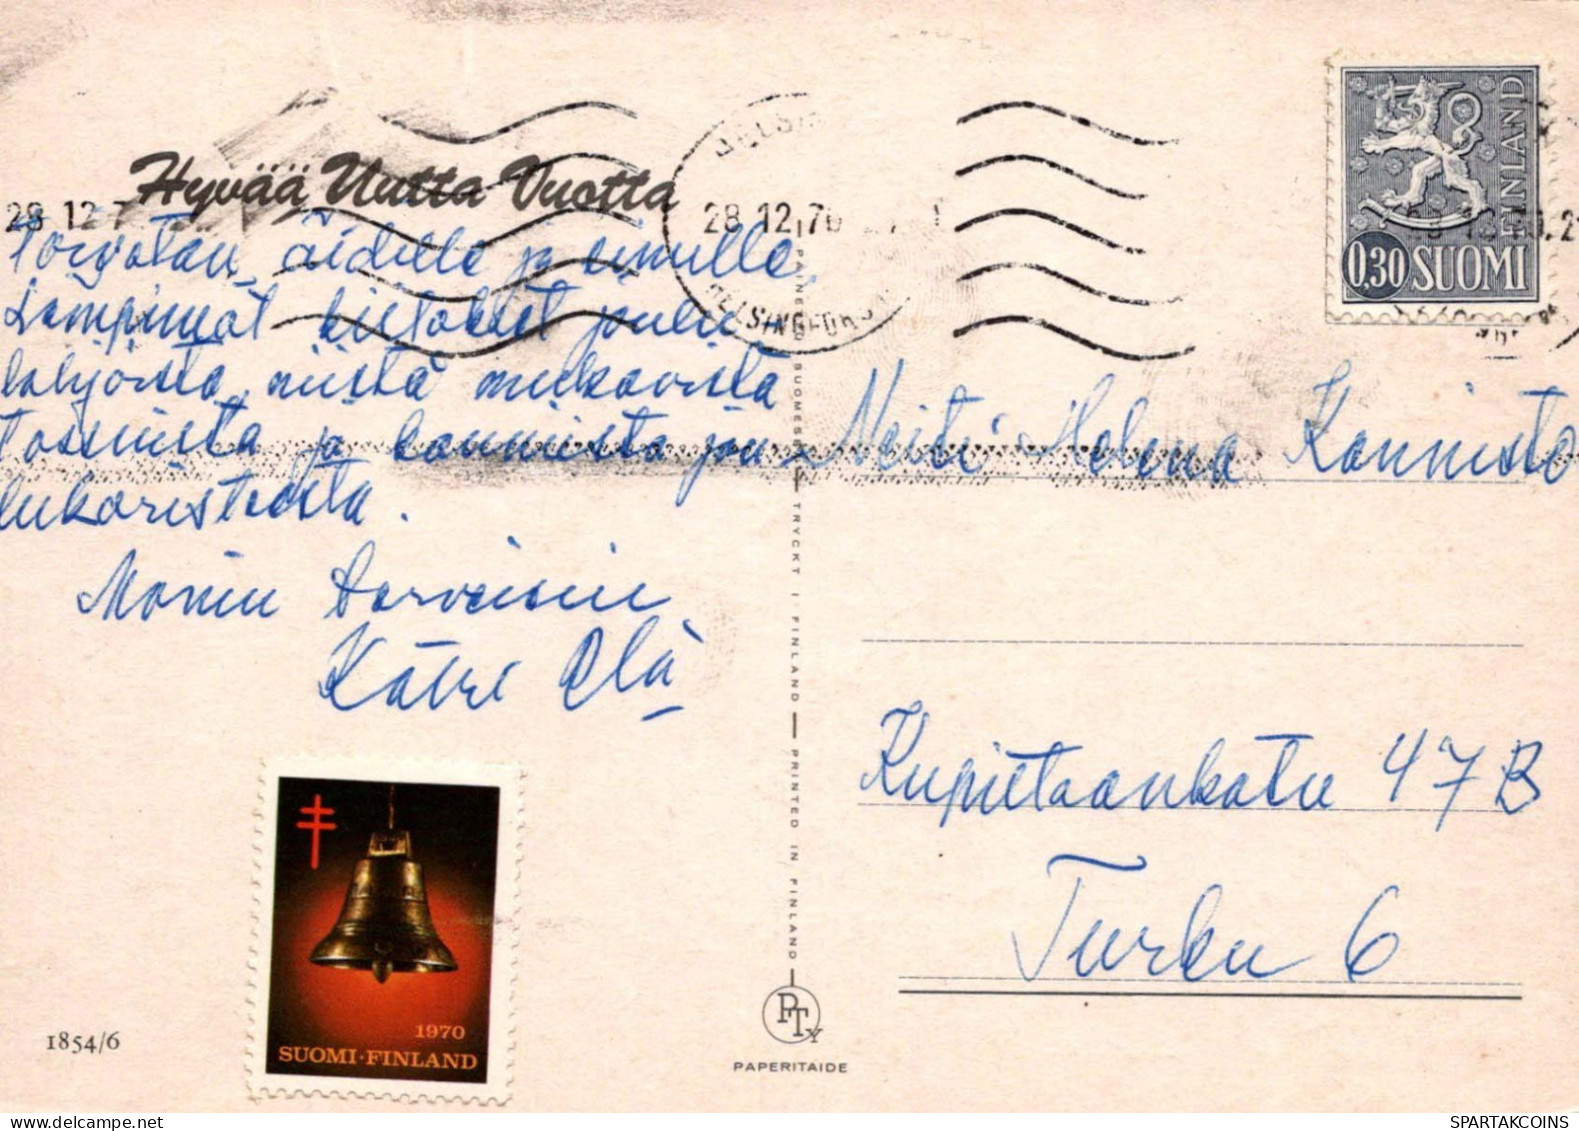 Hyvää Uutta Vuotta
28 12 7
28.12.70
HELSINGFORS
FINLAND
0,30 SUOMI
Toivotan äidille ja sinulle.
Lämpimät kiitokset joulu
lahjoista, niistä mukavista
tossuista ja kauniista jou
lukoristeesta.
Monin terveisin
Kätri Olä
Neiti Helena Kannisto
Kupittaankatu 47 B
Turku 6
PAINETTU SUOMESSA — TRYCKT I FINLAND — PRINTED IN FINLAND
1970
SUOMI·FINLAND
1854/6
PTY
PAPERITAIDE
SPARTAKCOINS